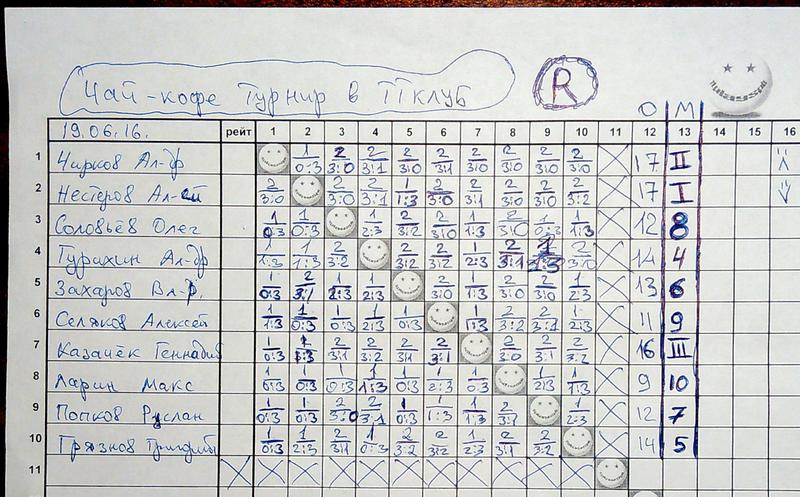 Чай-кофе Турнир в ТТклуб R
О М
19.06.16. рейт 1 2 3 4 5 6 7 8 9 10 11 12 13 14 15 16
1 Чирков Ал-др 1 0:3 2 3:0 2 3:1 2 3:0 2 3:1 2 3:0 2 3:0 2 3:0 2 3:0 17 II
2 Нестеров Ал-ей 2 3:0 2 3:0 2 3:1 1 1:3 2 3:0 2 3:1 2 3:0 2 3:0 2 3:2 17 I
3 Соловьёв Олег 1 0:3 1 0:3 1 2:3 2 3:2 2 3:0 1 1:3 2 3:0 1 0:3 1 1:3 12 8
4 Турихин Ал-др 1 1:3 1 1:3 2 3:2 2 3:2 2 3:2 1 2:3 2 3:1 1 1:3 2 3:0 14 4
5 Захаров Вл-р. 1 0:3 2 3:1 1 2:3 1 2:3 2 3:0 1 1:3 2 3:0 2 3:0 1 2:3 13 6
6 Селяков Алексей 1 1:3 1 0:3 1 0:3 1 2:3 1 0:3 1 1:3 2 3:2 2 3:1 1 2:3 11 9
7 Казачёк Геннадий 1 0:3 1 1:3 2 3:1 2 3:2 2 3:1 2 3:1 2 3:0 2 3:1 2 3:2 16 III
8 Ларин Макс 1 0:3 1 0:3 1 0:3 1 1:3 1 0:3 1 2:3 1 0:3 1 2:3 1 1:3 9 10
9 Попков Руслан 1 0:3 1 0:3 2 3:0 2 3:1 1 0:3 1 1:3 1 1:3 2 3:2 1 2:3 12 7
10 Грязнов 1 0:3 1 2:3 2 3:1 1 0:3 2 3:2 2 3:2 1 2:3 2 3:1 2 3:2 14 5
11